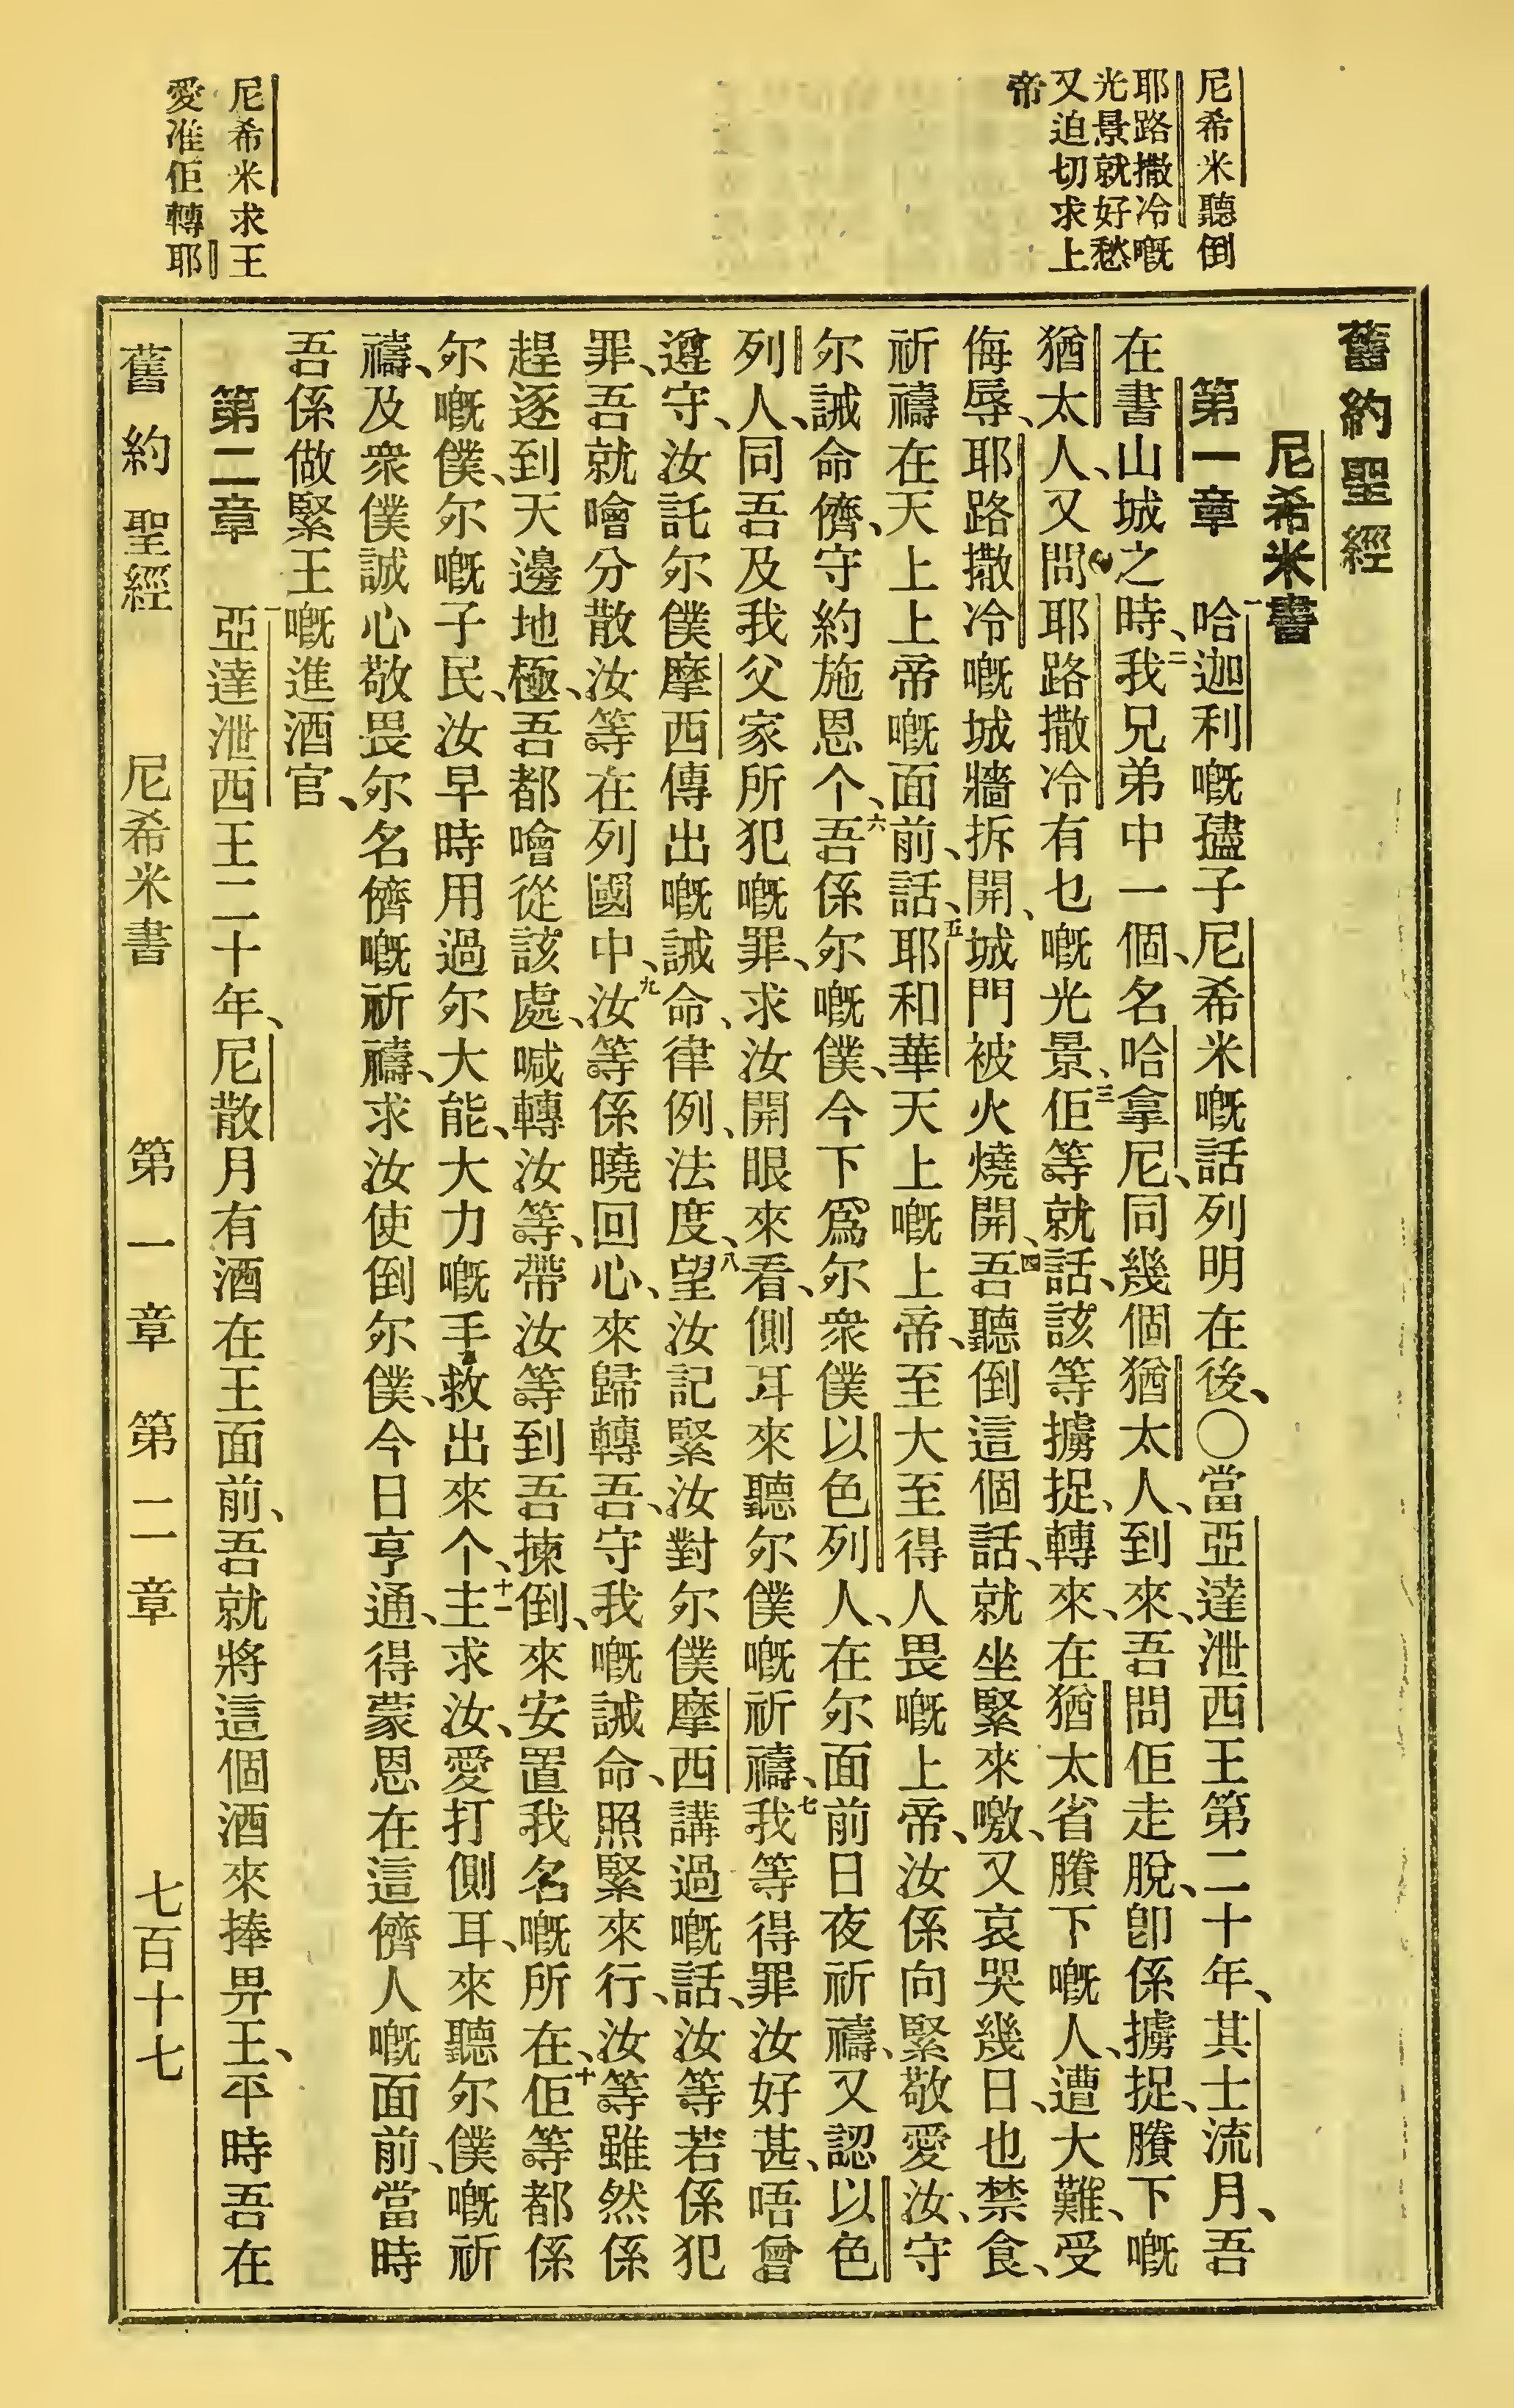 尼希米聽倒
耶路撒冷嘅
光景就好愁
又迫切求上
帝
尼希米求王
愛准佢轉耶
舊約聖經
尼希米書
第一章 一哈迦利嘅𡥧子尼希米嘅話列明在後、〇當亞達泄西王第二十年、其士流月、吾
在書山城之時、二我兄弟中一個、名哈拿尼、同幾個猶太人、到來、吾問佢走脫、卽係擄捉、賸下嘅
猶太人、又問耶路撒冷有乜嘅光景、三佢等就話、該等擄捉、轉來、在猶太省賸下嘅人、遭大難、受
侮辱、耶路撒冷嘅城牆拆開、城門被火燒開、四吾聽倒這個話、就坐緊來噭、又哀哭幾日、也禁食、
祈禱在天上上帝嘅面前、話、五耶和華天上嘅上帝、至大至得人畏嘅上帝、汝係向緊敬愛汝、守
尔誡命儕、守約施恩个、六吾係尔嘅僕、今下爲尔衆僕以色列人、在尔面前日夜祈禱、又認以色
列人、同吾及我父家所犯嘅罪、求汝開眼來看、側耳來聽尔僕嘅祈禱、七我等得罪汝好甚、唔曾
遵守、汝託尔僕摩西傳出嘅誡命、律例、法度、八望汝記緊汝對尔僕摩西講過嘅話、汝等若係犯
罪、吾就噲分散汝等在列國中、九汝等係曉回心、來歸轉吾、守我嘅誡命、照緊來行、汝等雖然係
趕逐到天邊地極、吾都噲從該處、喊轉汝等、帶汝等到吾揀倒、來安置我名嘅所在、十佢等都係
尔嘅僕、尔嘅子民、汝早時用過尔大能、大力嘅手、救出來个、十一主求汝、愛打側耳、來聽尔僕嘅祈
禱、及衆僕誠心敬畏尔名儕嘅祈禱、求汝使倒尔僕、今日亨通、得蒙恩在這儕人嘅面前、當時
吾係做緊王嘅進酒官、
第二章 一亞達泄西王二十年、尼散月有酒在王面前、吾就將這個酒來捧畀王、平時吾在
舊約聖經 尼希米書 第一章 第二章 七百十七